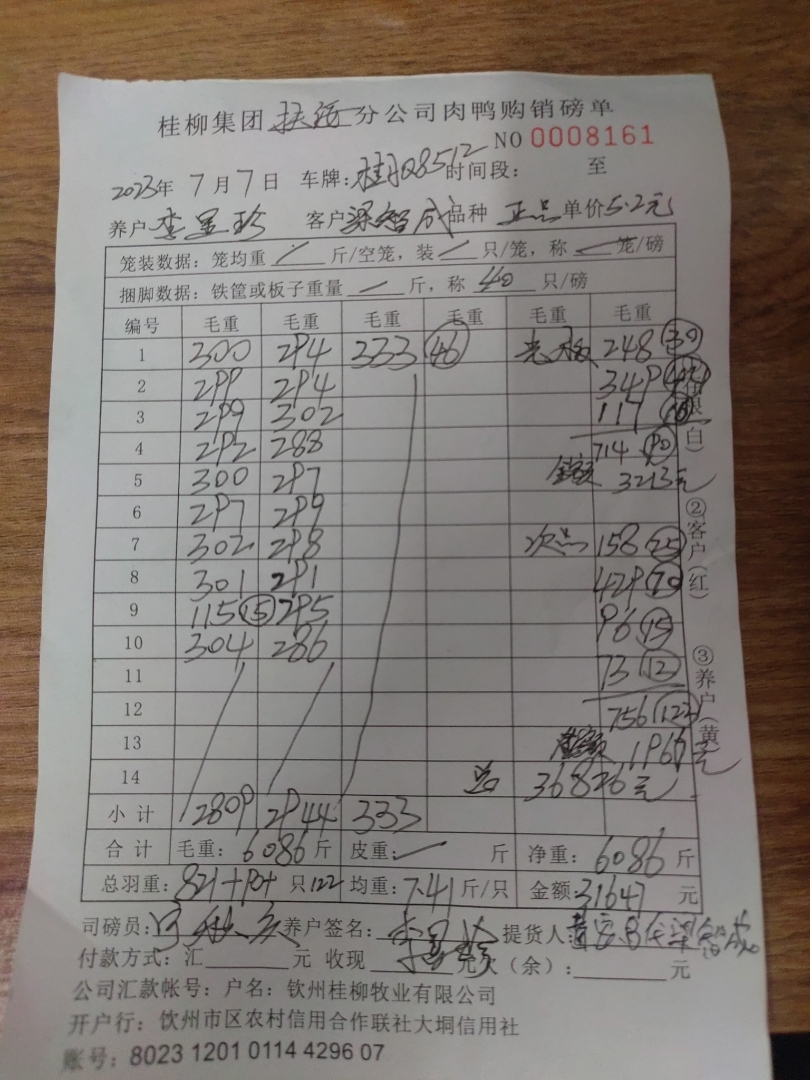 桂柳集团 分公司肉鸭购销磅单
NO 0008161
2023年 7月7日 车牌:桂 Q8512 时间段: 至
养户 李显珍 客户 梁智成 品种 正品 单价 5.2元
笼装数据: 笼均重 / 斤/空笼, 装 / 只/笼, 称 / 笼/磅
捆脚数据: 铁筐或板子重量 / 斤, 称 40 只/磅
编号 毛重 毛重 毛重 毛重 毛重 毛重
1 300 294 333 46 248 30
2 299 294 349
3 299 302 117
4 292 288 714 90
5 300 297 金额 3213元
6 297 299
7 302 298 次品 158 25
8 301 291 429 70
9 115 15 295 96 15
10 304 286 73 12
11
12 756 122
13 金额 1966元
14 36826元
小计 2809 2944 333
合计 毛重: 6086 斤 皮重: / 斤 净重: 6086 斤
总羽重: 821+90+ 只 122 均重: 7.41 斤/只 金额: 31647 元
司磅员: 养户签名: 李显珍 提货人:
付款方式: 汇 元 收现 元 欠(余): 元
公司汇款帐号: 户名: 钦州桂柳牧业有限公司
开户行: 钦州市区农村信用合作联社大垌信用社
账号: 8023 1201 0114 4296 07
(白)
②客户(红)
③养户(黄)